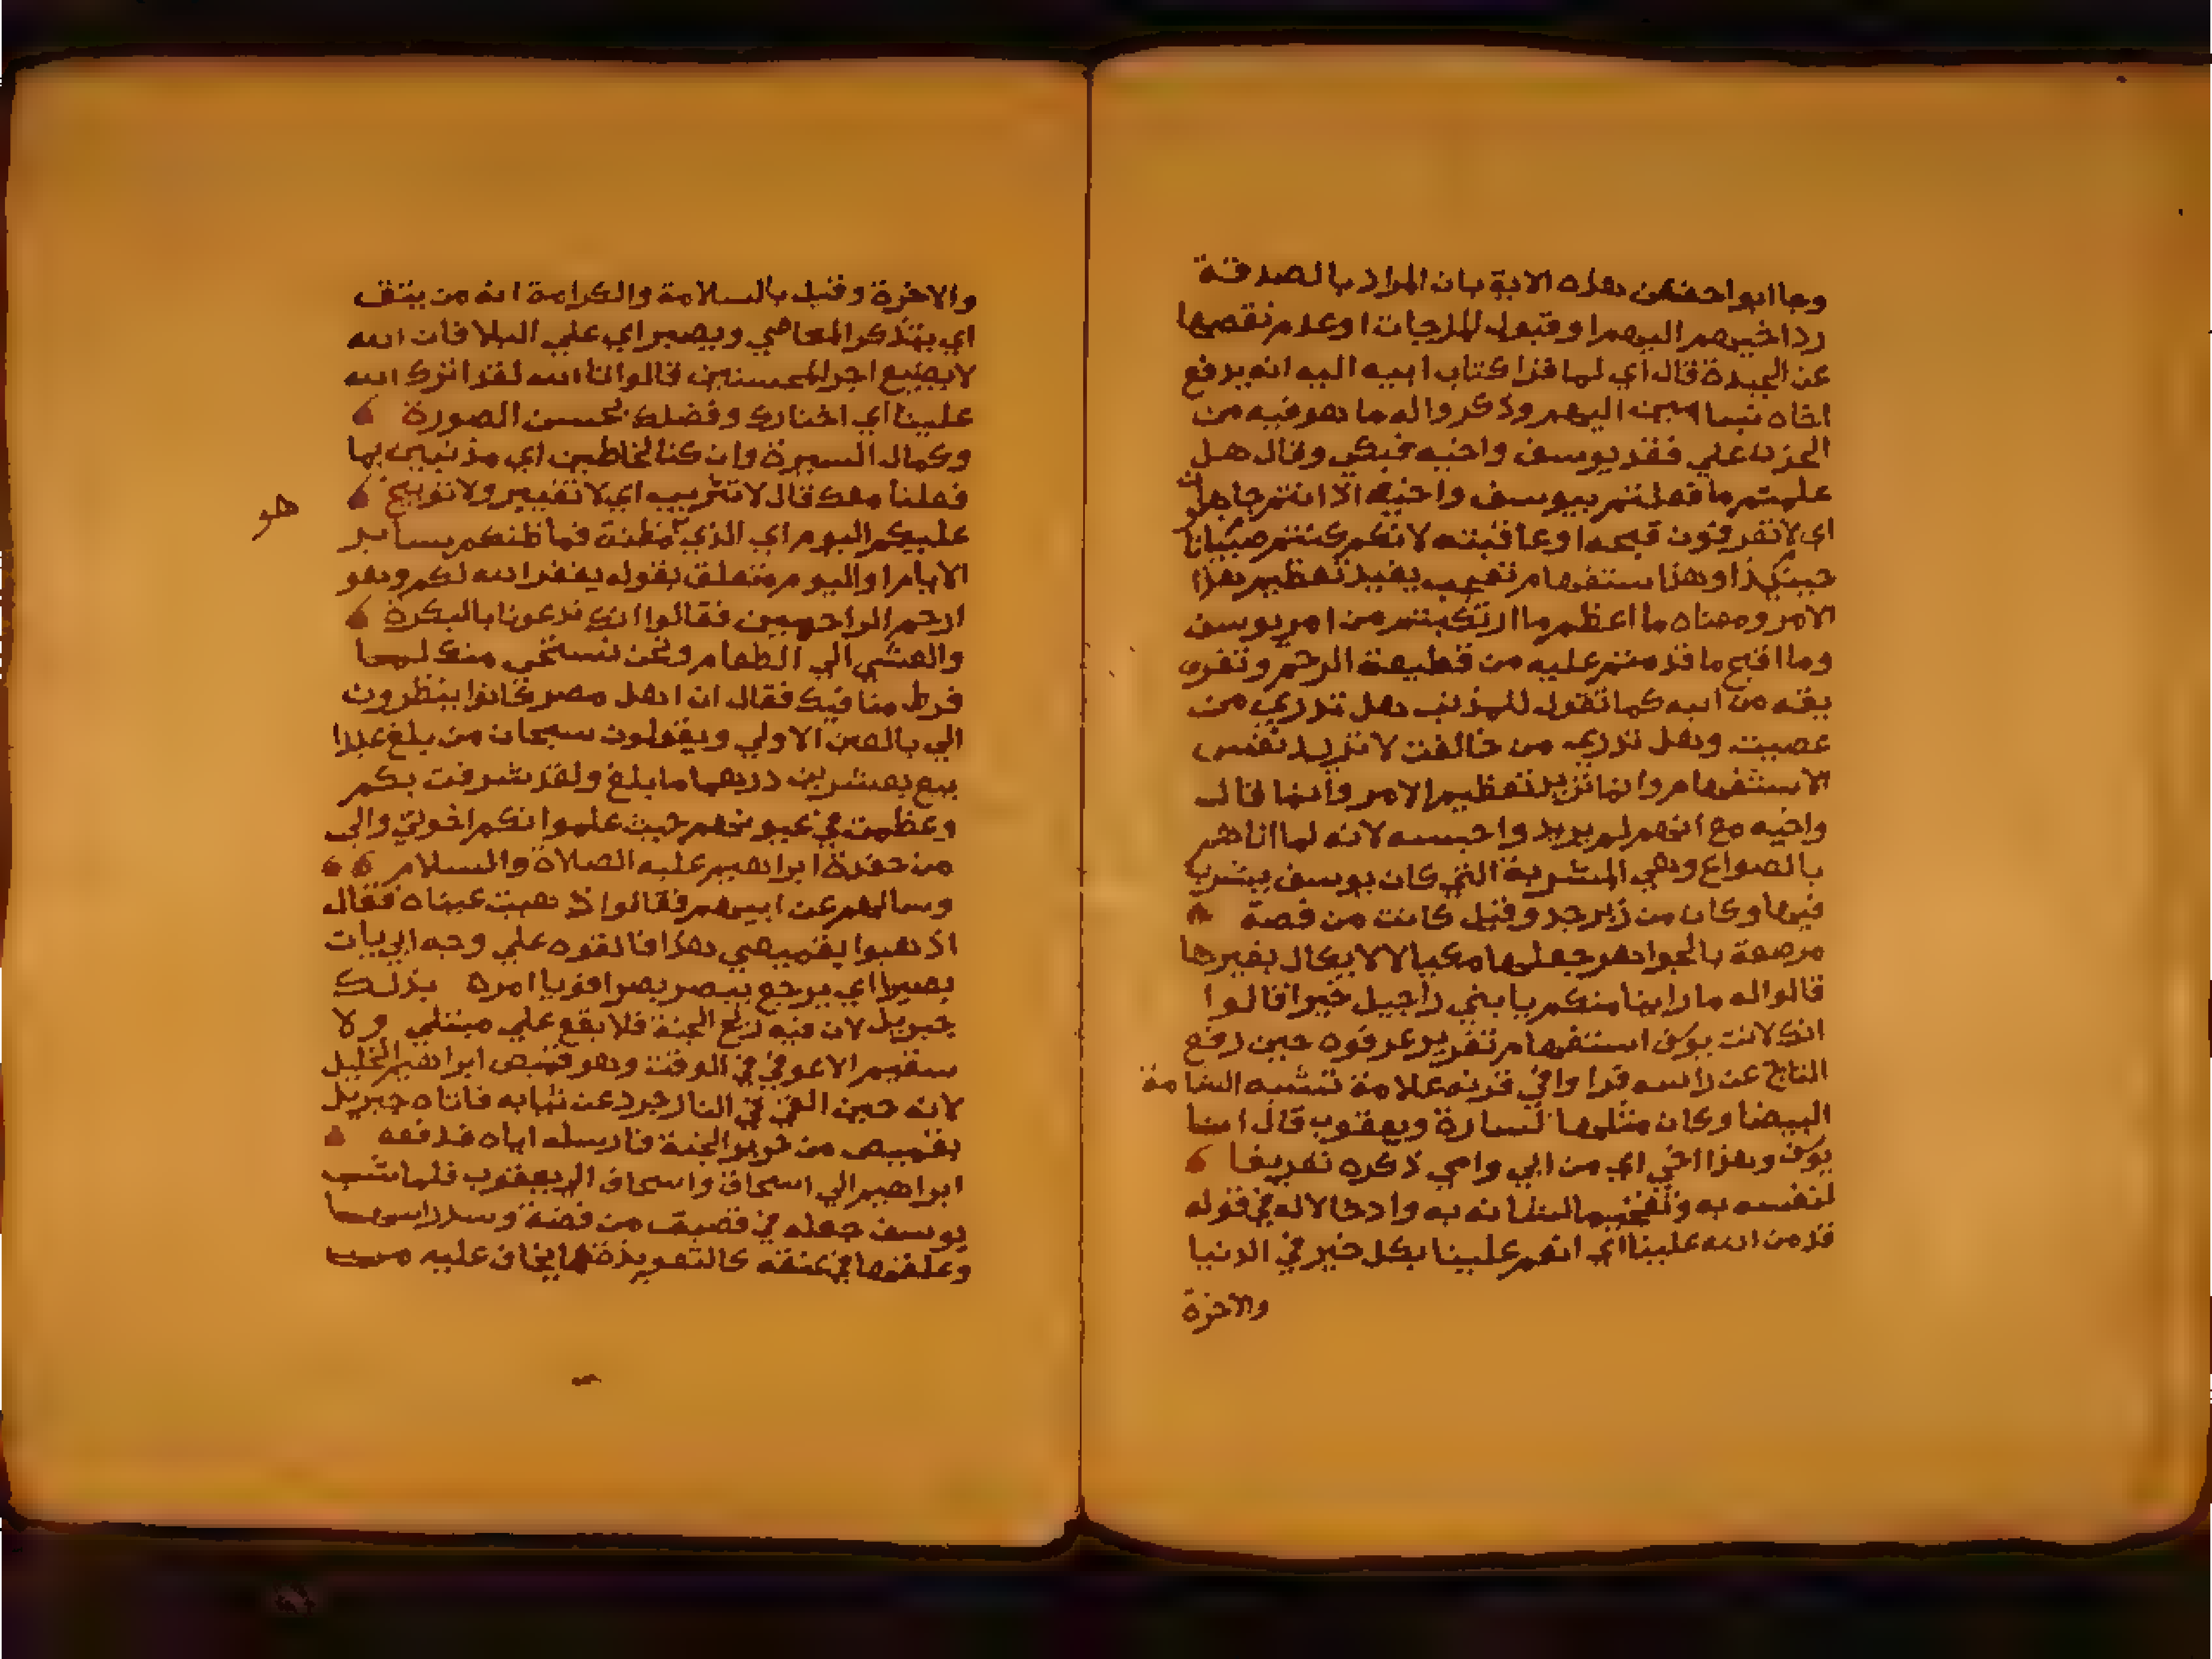 وجا ابوا حفص عن هذه الاية بان المراد بالصدقة
رد اخيهم اليهم او قبول المزجات او عدم نقصها
عن الجيدة قال اي لما قرا كتاب ابيه اليه انه يرفع
اخاه بنيامين اليهم وذكروا له ما هو فيه من
الحزن علي فقد يوسف واخيه فبكي وقال هل
علمتم ما فعلتم بيوسف واخيه اذ انتم جاهلون
اي لا تفرقون قبحه او عاقبته لانكم كنتم صبيانا
حينئذ او هذا ستفهام تعجب يفيد تعظيم هذا
الامر ومعناه ما اعظم ما ارتكبتم من امر يوسف
وما اقبح ما قدمتم عليه من قطيعة الرحم وتفري
يقه من ابيه كما تقول للمذنب هل تدري من
عصيت وهل تدري من خالفت لا تريد نفس
الاستفهام وانما تريد تعظيم الامر وانما قال
واخيه مع انهم لم يريد واحبسه لانه لما اتاهم
بالصواع وهي المشربة التي كان يوسف يشرب
فيها وكان من زبرجد وقيل كانت من فضة
مرصعة بالجواهر جعلها مكيالا لا يكال بغيرها
قالوا له ما راينا منكم يا بني راجيل خيرا قالوا
انك لانت يوسف استفهام تقرير عرفوه حين رفع
التاج عن راسه فرا وافي قرنه علامة تشبه الشامة
البيضا وكان مثلها لسارة ويعقوب قال انا
يوسف وهذا اخي اي من ابي وامي ذكره تعريفا
لنفسه به وتفخيما لشانه به وادخالا له في قوله
قد من الله علينا اي انعم علينا بكل خير في الدنيا
والاخرة
والاخرة وقيل بالسلامة والكرامة انه من يتق
اي يتذكر المعاصي ويصبر اي علي البلا فان الله
لا يضيع اجر المحسنين قالوا تا الله لقد اثرك الله
علينا اي اختارك وفضلك بحسن الصورة
وكمال السيرة وان كنا لخاطين اي مذنبين بما
فعلنا معك قال لا تثريب اي لا تغيير ولا توبيخ
عليكم اليوم اي الذي مظنة فما ظنكم بساير
الايام او اليوم متعلق بقوله يغفر الله لكم وهو
ارحم الراحمين فقالوا انك تدعونا بالبكرة
والعشي الي الطعام ونحن نستحي منك لما
فرط منا فيك فقال ان اهل مصر كانوا ينظرون
الي بالعين الاولي ويقولون سبحان من بلغ عبدا
بيع بعشرين درهما ما بلغ ولقد شرفت بكم
وعظمت في عيونهم حيث علموا انكم اخوتي واني
من حفدة ابراهيم عليه الصلاة والسلام
وسالهم عن ابيهم فقالوا ذهبت عيناه فقال
اذهبوا بقميصي هذا فالقوه علي وجه ابي يات
بصيرا اي يرجع يبصر بصرا قويا امره بذلك
جبريل لان فيه ريح الجنة فلا يقع علي مبتلي ولا
سقيم الا عوفي في الوقت وهو قميص ابراهيم الخليل
لانه حين القي في النار جرد عن ثيابه فاتاه جبريل
بقميص من حرير الجنة فارسله اياه فدفعه
ابراهيم الي اسحاق واسحاق الي يعقوب فلما شب
يوسف جعله في قصبة من فضة وسد راسها
وعلقها في عنقه كالتعويذة لما يخاف عليه من
هو